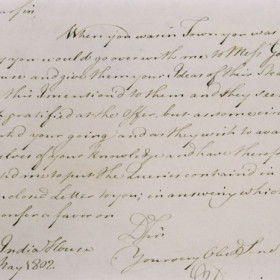 Where you was in Town you was
you would go over with me to Mess
and give them your Ideas of this
this I mentioned to them and they see
gratified at the Offer, but as some cir
your going and as they wish to ava
selves of your Knowledge and have there
me to put the Queries contained in
closed Letter to you; in answering which
confer a favor on
Sir
Your very Obed
India House
May 1802